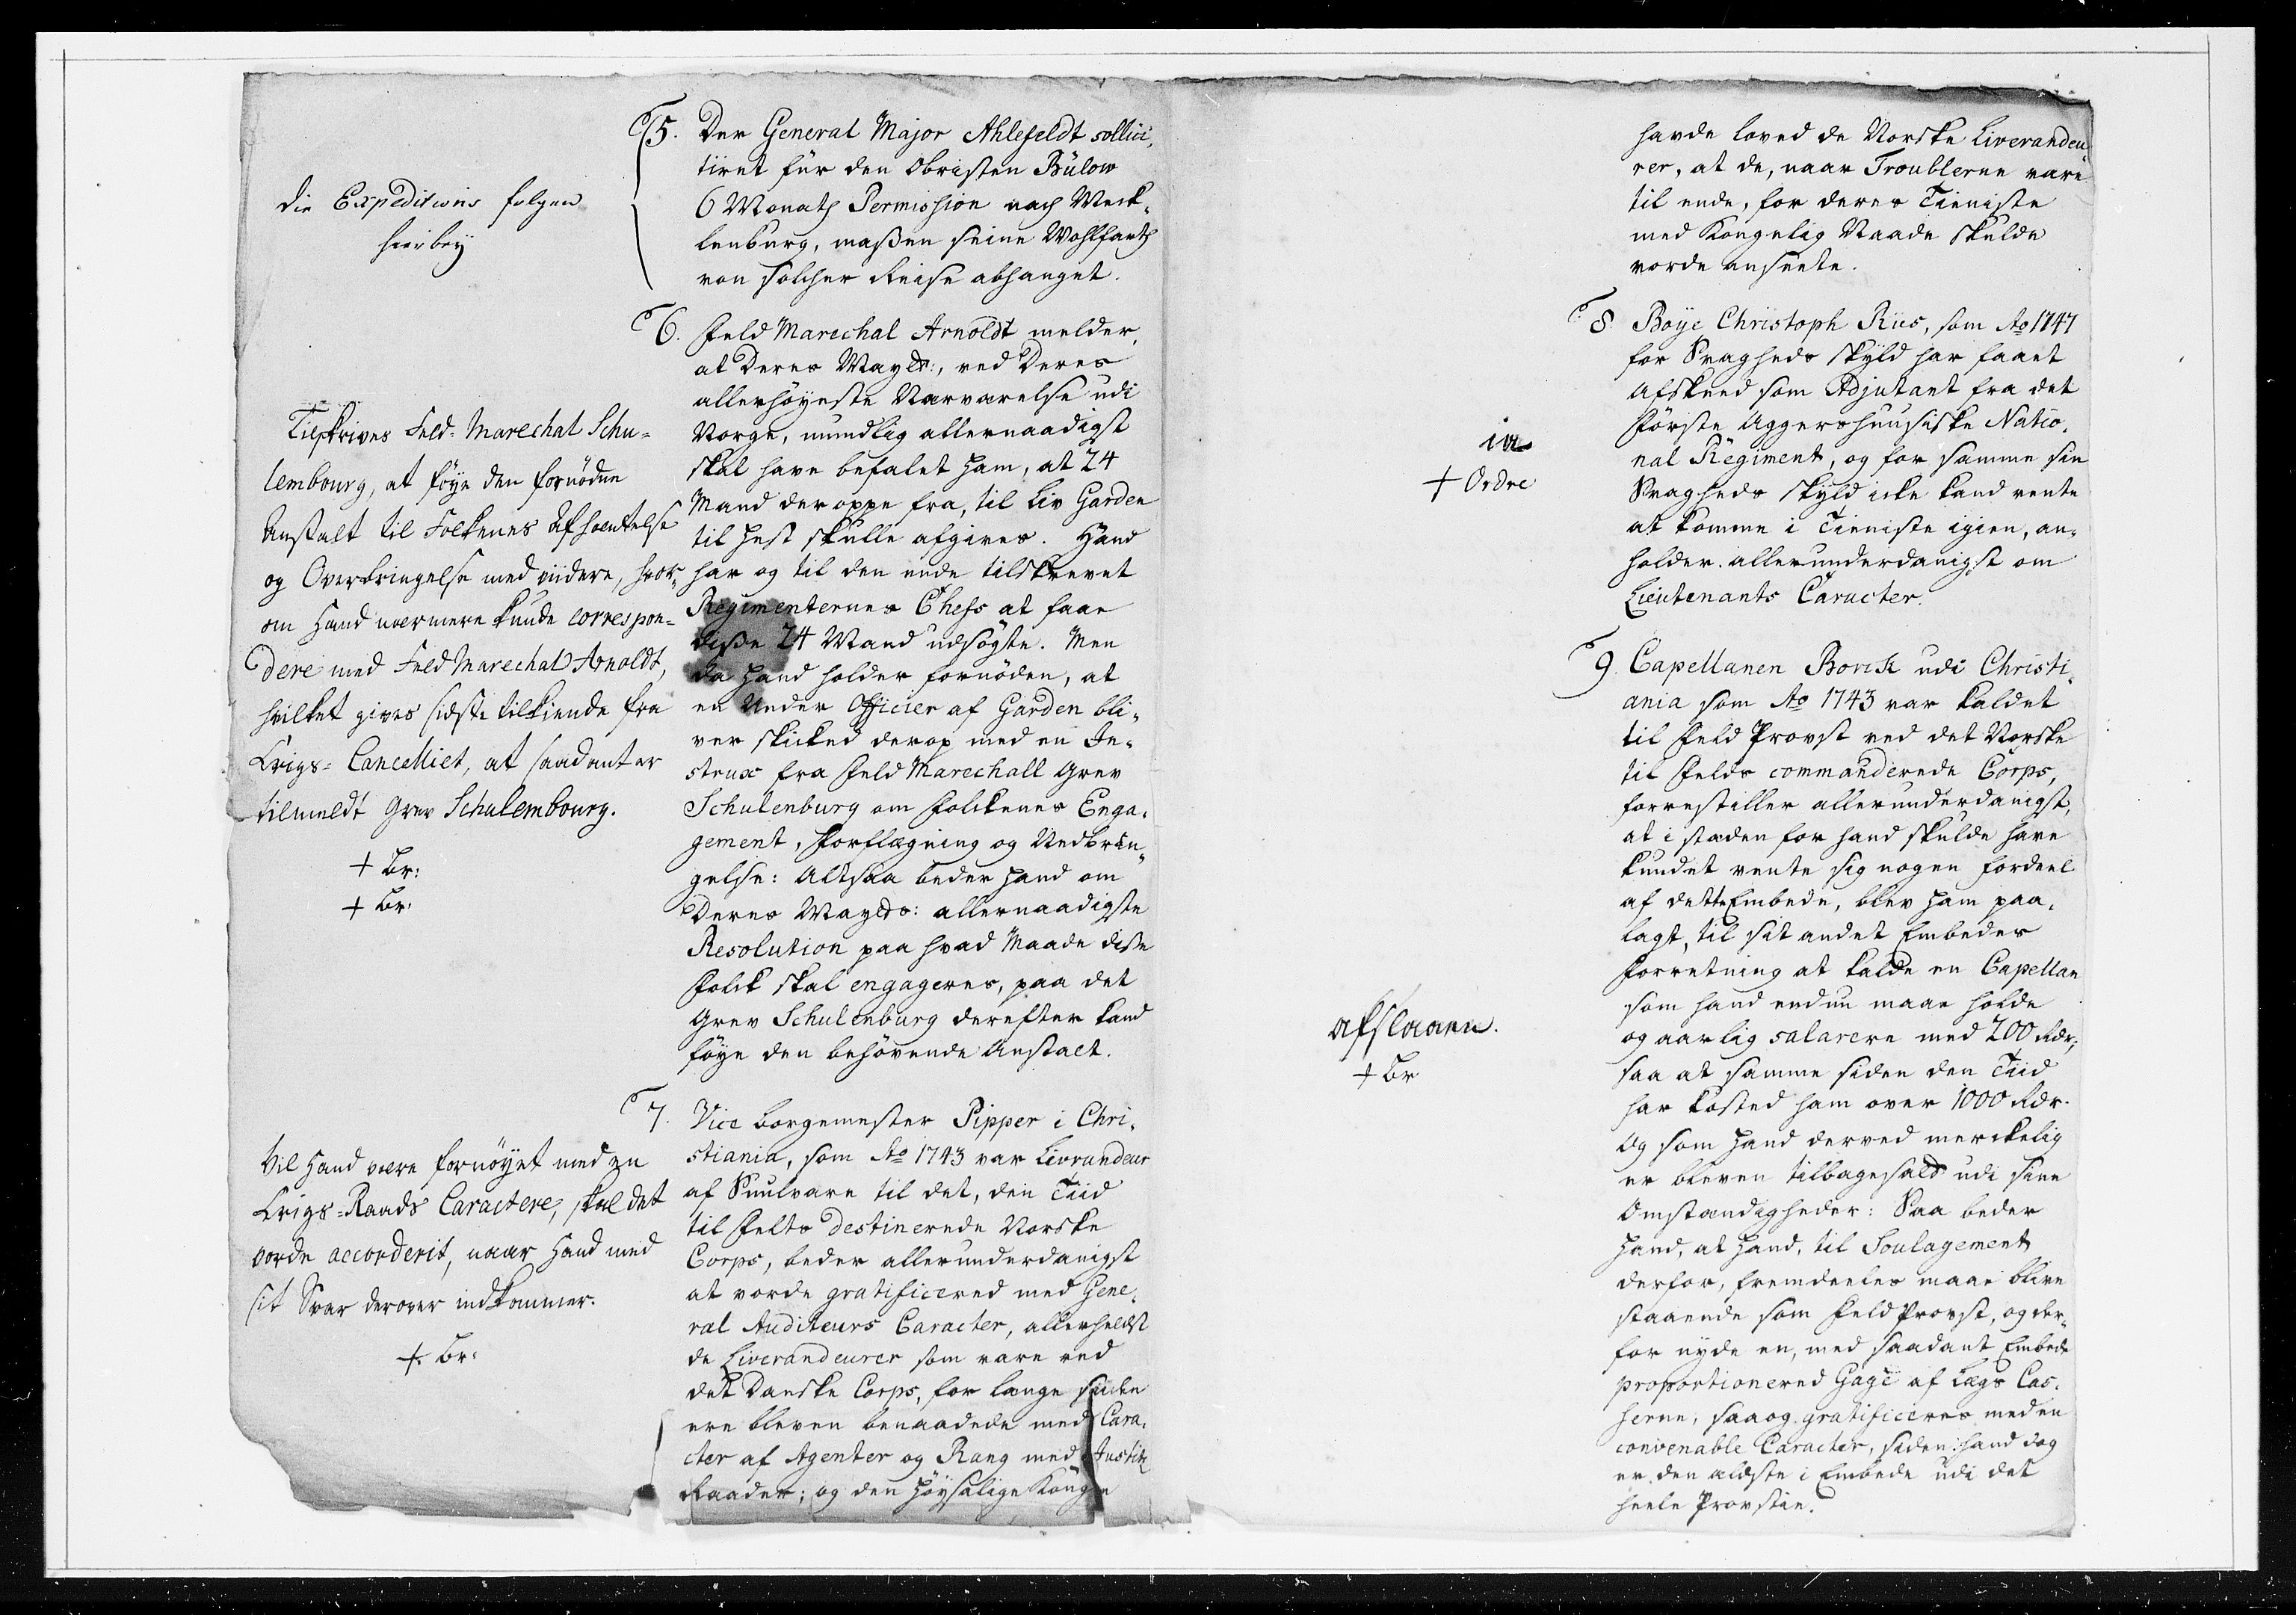 5. Der General Major Ahlefeldt sollici„
tiret für den Obristen Bülow
6 Monath Permission nach Meck„
lenburg, maßen seine Wohlfarth
von solcher Reise abhanget.
die Expeditions folgen
hierbey
6. Feld Marechal Arnoldt melder,
at Deres Maytt:, ved Deres
allerhöyeste Nærværelse udi
Norge, mundtlig allernaadigst
skal have befalet ham, at 24
Mand deroppe fra, til Liv Garden
til Hest skulle afgives. Hand
har og til den ende tilskrevet
Regimenternes Chefs at faae
disse 24 Mand udsögte. Men
da Hand holder fornöden, at
en Under Officier af Garden bli„
ver skicked derop med en In„
strux fra Feld Marechall Grev
Schulenburg om Folckenes Enga„
gement, Forflægning og Nedbrin„
gelse: Altsaa beder Hand om
Deres Mayts: allernaadigste
Resolution paa hvad Maade disse
Folck skal engageres, paa det
Grev Schulenburg derefter kand
föye den behövende Anstalt.
Tilskrives Feld-Marechal Schu=
lembourg, at föye den fornödne
Anstalt til Folkenes Afhentelse
og Overbringelse med viidere, hvor„
om Hand nærmere kunde correspon=
dere med Feld Marechal Arnoldt,
hvilket gives sidste tilkiende fra
Krigs=Cancelliet, at saadant er
tilmeldt Grev Schulembourg.
+ Br:
+ Br:
7. Vice Borgemester Pipper i Chri„
stiania, som Ao 1743 var Livrandeur
af Suulvare til det, den Tiid
til Felts destinerede Norske
Corps, beder allerunderdanigst
at vorde gratificered med Gene„
ral Auditeurs Caracter, allerheldst
de Liverandeurer som vare ved
det Danske Corps, for længe siden
ere bleven benaadede med Cara„
cter af Agenter og Rang med Justitz
Raader; og den Höysalige Konge
Vil Hand være fornöyet med en
Krigs=Raads Caractere, skal det
vorde accorderit, naar Hand med
sit Svar derover indkommer.
+. Br:
havde loved de Norske Liverandeu„
rer, at de, naar Troublerne vare
til ende, for deres Tieniste
med Kongelig Naade skulde
vorde anseete.
8. Boye Christoph Riis, som Ao 1747
for Svagheds skyld har faaet
Afskeed som Adjutant fra det
Förste Aggershuusiske Natio„
nal Regiment, og for samme sin
Svagheds skyld icke kand vente
at komme i Tieniste igien, an„
holder allerunderdanigst om
Lieutenants Caracter.
ia
+ Ordre
9. Capellanen Borck udi Christi„
ania som Ao 1743 var kaldet
til Feld Provst ved det Norske
til Felds commanderede Corps,
forrestiller allerunderdanigst,
at i stæden for hand skulde have
kundet vente sig nogen fordeel
af dette Embede, blev ham paa„
lagt, til sit andet Embedes
Forretning at kalde en Capellan
som hand endnu maae holde
og aarlig salarere med 200 Rdr,
saa at samme siden den Tiid
har kosted ham over 1000 Rdr.
Og som Hand derved merckelig
er bleven tilbagesatt udi sine
Omstændigheder: Saa beder
Hand, at Hand, til Soulagement
derfor, fremdeeles maae blive
staaende som Feld Provst, og der„
for nyde en, med saadant Embede
proportionered Gage af Lægs Cas„
serne, saa og gratificeres med en
convenable Caracter, siden hand dog
er den ældste i Embede udi det
heele Provstie.
afslaaen.
+ Br